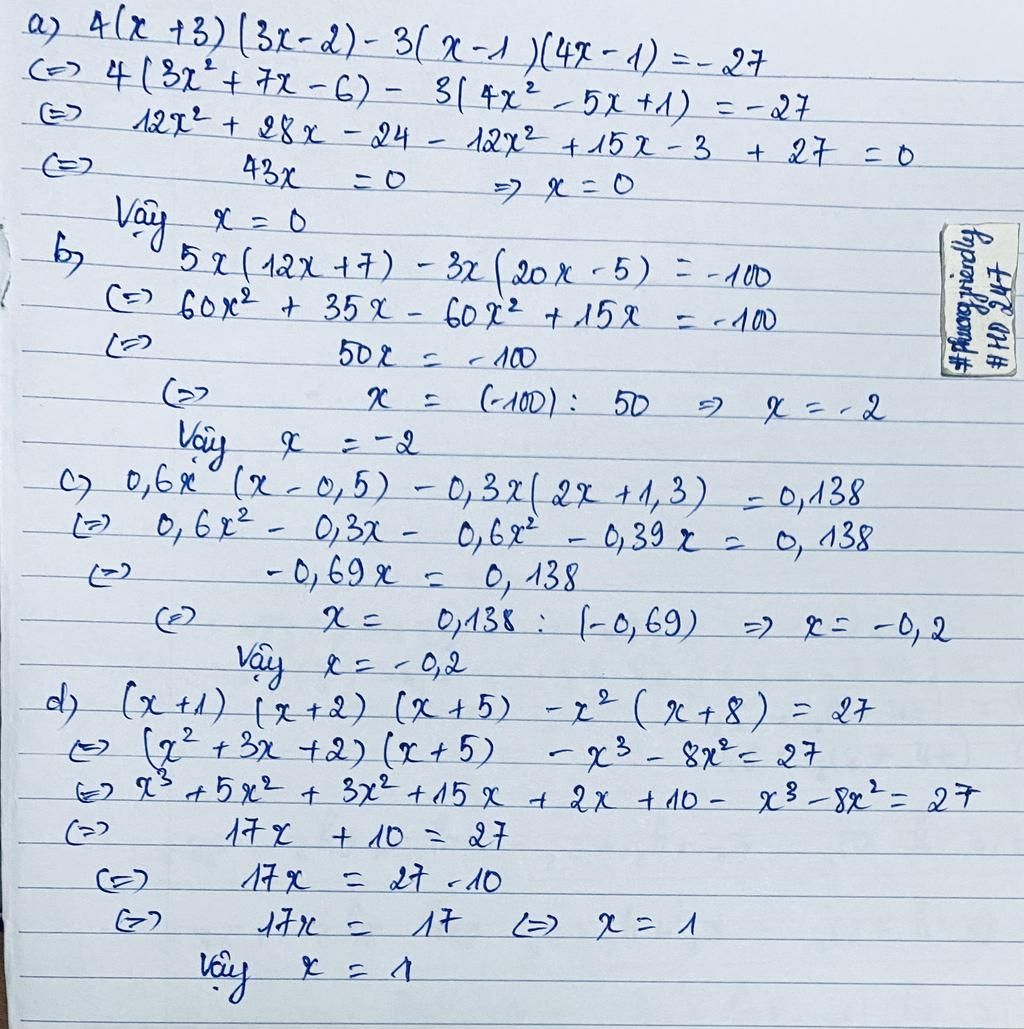 a) 4(x + 3)(3x - 2) - 3(x - 1)(4x - 1) = - 27
(=) 4(3x² + 7x - 6) - 3(4x² - 5x + 1) = - 27
(=) 12x² + 28x - 24 - 12x² + 15x - 3 + 27 = 0
(=) 43x = 0 => x = 0
Vậy x = 0
b) 5x(12x + 7) - 3x(20x - 5) = - 100
(=) 60x² + 35x - 60x² + 15x = - 100
(=) 50x = - 100
(=) x = (-100) : 50 => x = - 2
Vậy x = - 2
c) 0,6x (x - 0,5) - 0,3x(2x + 1,3) = 0,138
(=) 0,6x² - 0,3x - 0,6x² - 0,39x = 0,138
(=) - 0,69x = 0,138
(=) x = 0,138 : (-0,69) => x = - 0,2
Vậy x = - 0,2
d) (x + 1) (x + 2) (x + 5) - x² (x + 8) = 27
(=) (x² + 3x + 2)(x + 5) - x³ - 8x² = 27
(=) x³ + 5x² + 3x² + 15x + 2x + 10 - x³ - 8x² = 27
(=) 17x + 10 = 27
(=) 17x = 27 - 10
(=) 17x = 17 (=) x = 1
Vậy x = 1